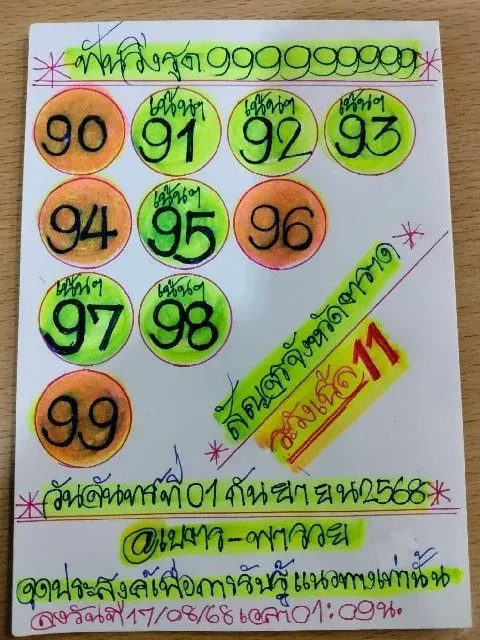 ฟันวิ่งรูด 9999999999
90
เน้นๆ 91
เน้นๆ 92
เน้นๆ 93
94
เน้นๆ 95
96
เน้นๆ 97
เน้นๆ 98
99
ระวังเบิ้ล 11
วันจันทร์ที่ 01 กันยายน 2568
จุดประสงค์เพื่อการรับรู้แนวทางเท่านั้น
ลงวันที่ 17/08/68 เวลา 01:09 น.